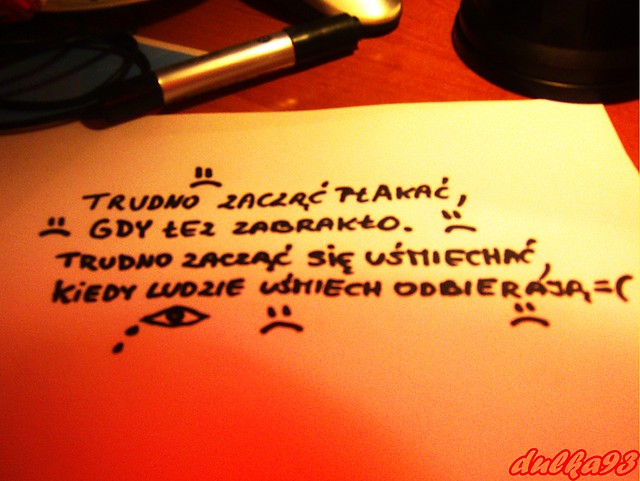 TRUDNO ZACZĄĆ PŁAKAĆ,
GDY ŁEZ ZABRAKŁO.
TRUDNO ZACZĄĆ SIĘ UŚMIECHAĆ,
KIEDY LUDZIE UŚMIECH ODBIERAJĄ =(
dulka93